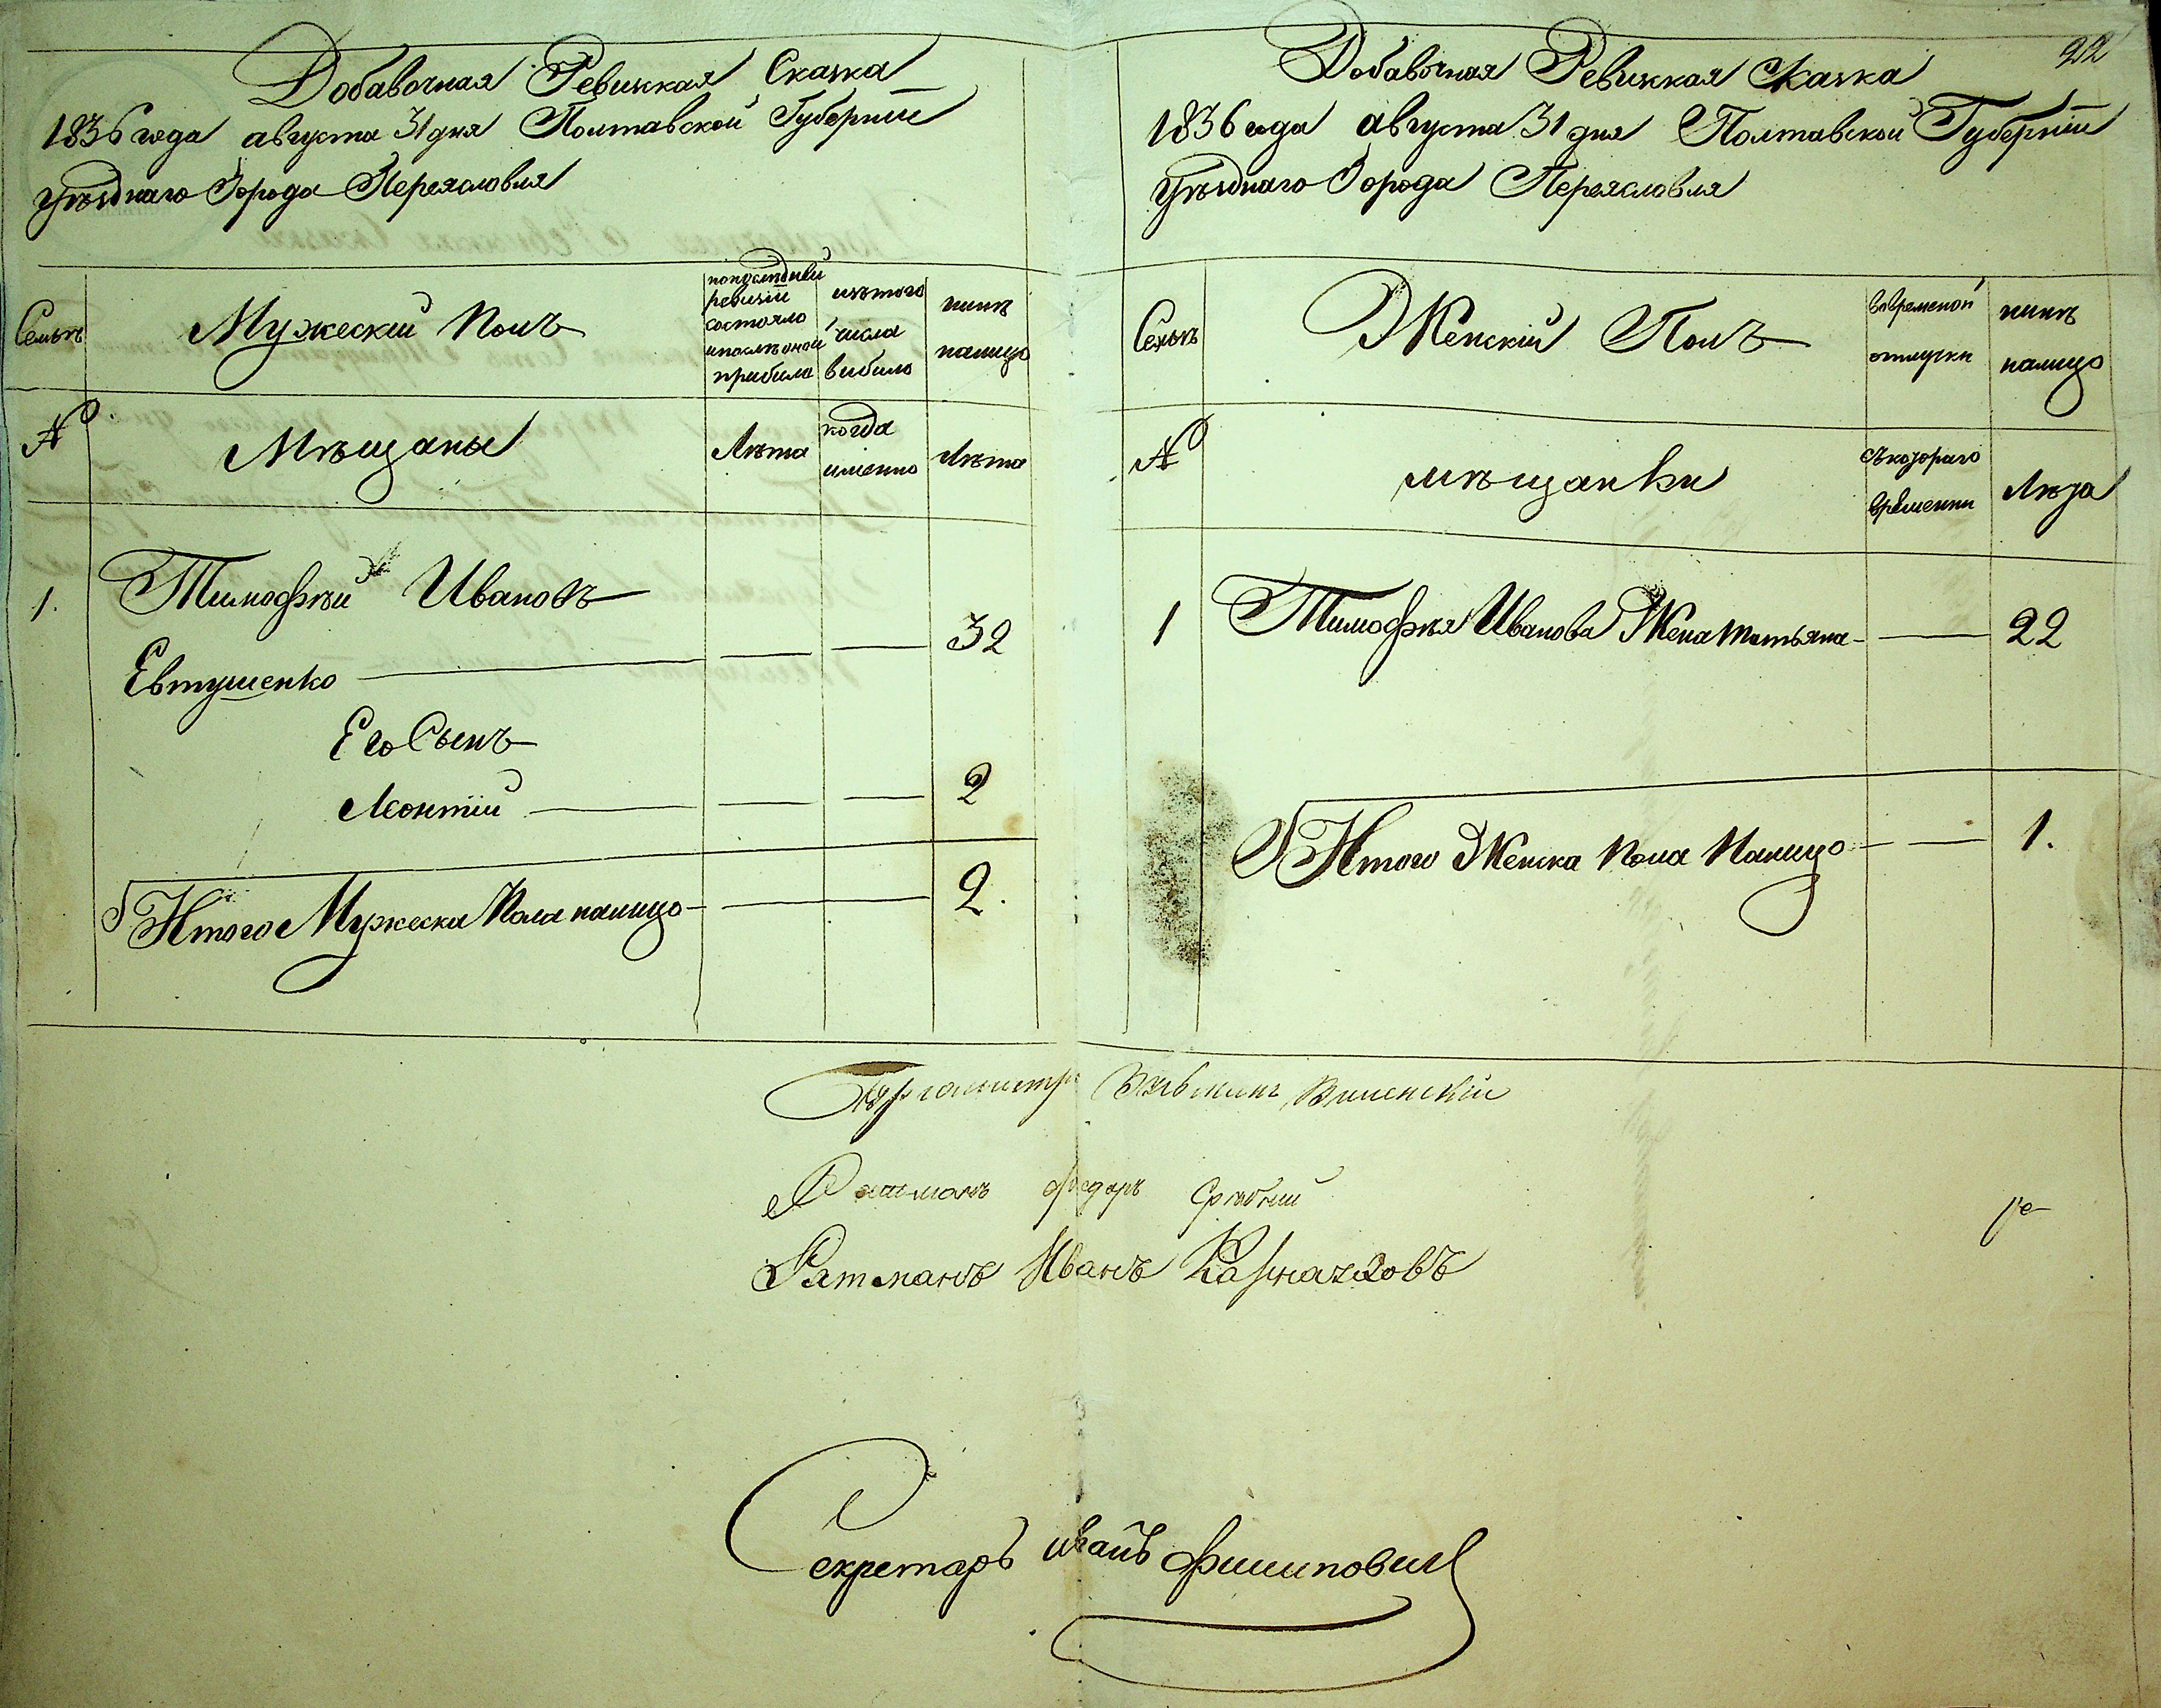 Добавочная Ревизская Сказка
1836 года августа 31 дня Полтавской Губернïи
Уѣзднаго Города Переясловля
Семьѣ
Мужескïй Полъ
попослѣдней
ревизïи
состояло
ипослѣ оной
прибыло
изътого
числа
выбыло
нынѣ
налицо
№
Мѣщаны
Лѣта
когда
именно
Лѣта
1.
Тимофѣй Ивановъ
Евтушенко
32
Его Сынъ
Леонтïй
2
Итого Мужеска Пола налицо
2.
22
Добавочная Ревизкая Сказка
1836 года августа 31 дня Полтавской Губернïи
Уѣзднаго Города Переясловля
Семьѣ
Женскïй Полъ
вовременой
отлучки
нынѣ
налицо
№
мѣщанки
съкотораго
времени
Лѣта
1
Тимофѣя Иванова Жена татьяна
22
Итого Женска Пола Налицо
1.
Бургомистръ
Ратманъ федоръ Сребний
Ратманъ Иванъ
Секретарь иванъ Филиповичъ